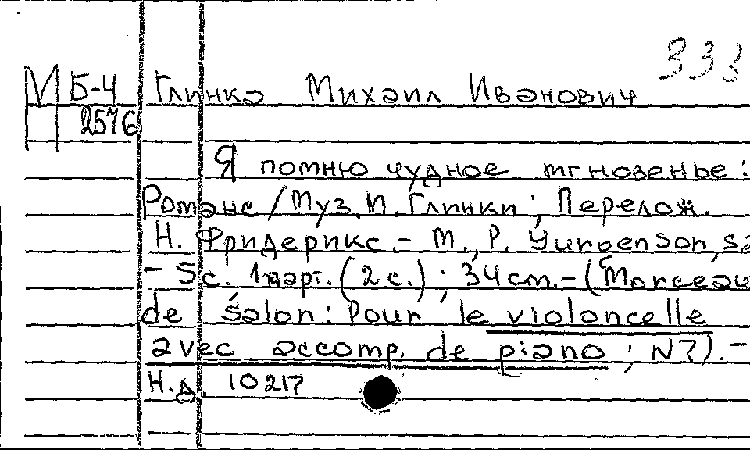 333
М Б-4 Глинка Михаил Иванович
2576
Я помню чудное мгновенье:
Романс / Муз. М. Глинки; Перелож.
Н. Фридерикс. – М., P. Yurgenson,
– 5 с. 1 парт. (2 с.); 34 см. – (Morceau
de salon: Pour le violoncelle
avec accomp. de piano; N7). –
Н.д. 10217